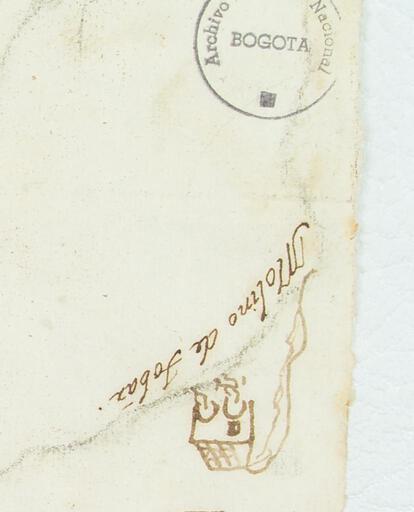 Archivo Nacional
BOGOTA
Molino de tobar.